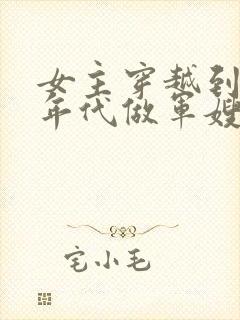 女主穿越到
年代做军嫂
宅小毛